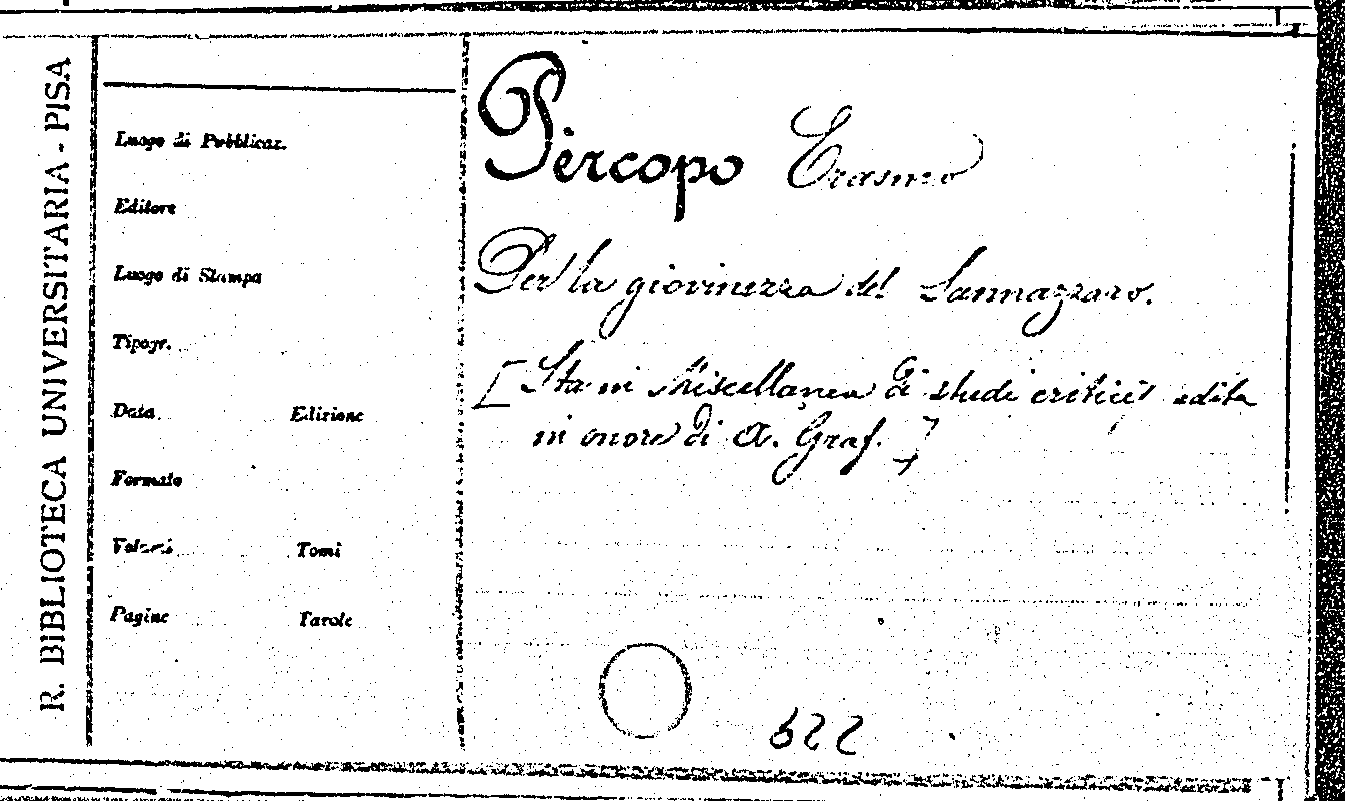 R. BIBLIOTECA UNIVERSITARIA - PISA
Luogo di Pubblicaz.
Editore
Luogo di Stampa
Tipogr.
Data Edizione
Formato
Volumi Tomi
Pagine Tavole
Pèrcopo Erasmo
Per la giovinezza del Sannazzaro.
[Sta in Miscellanea di studi critici edita
in onore di A. Graf.]
522